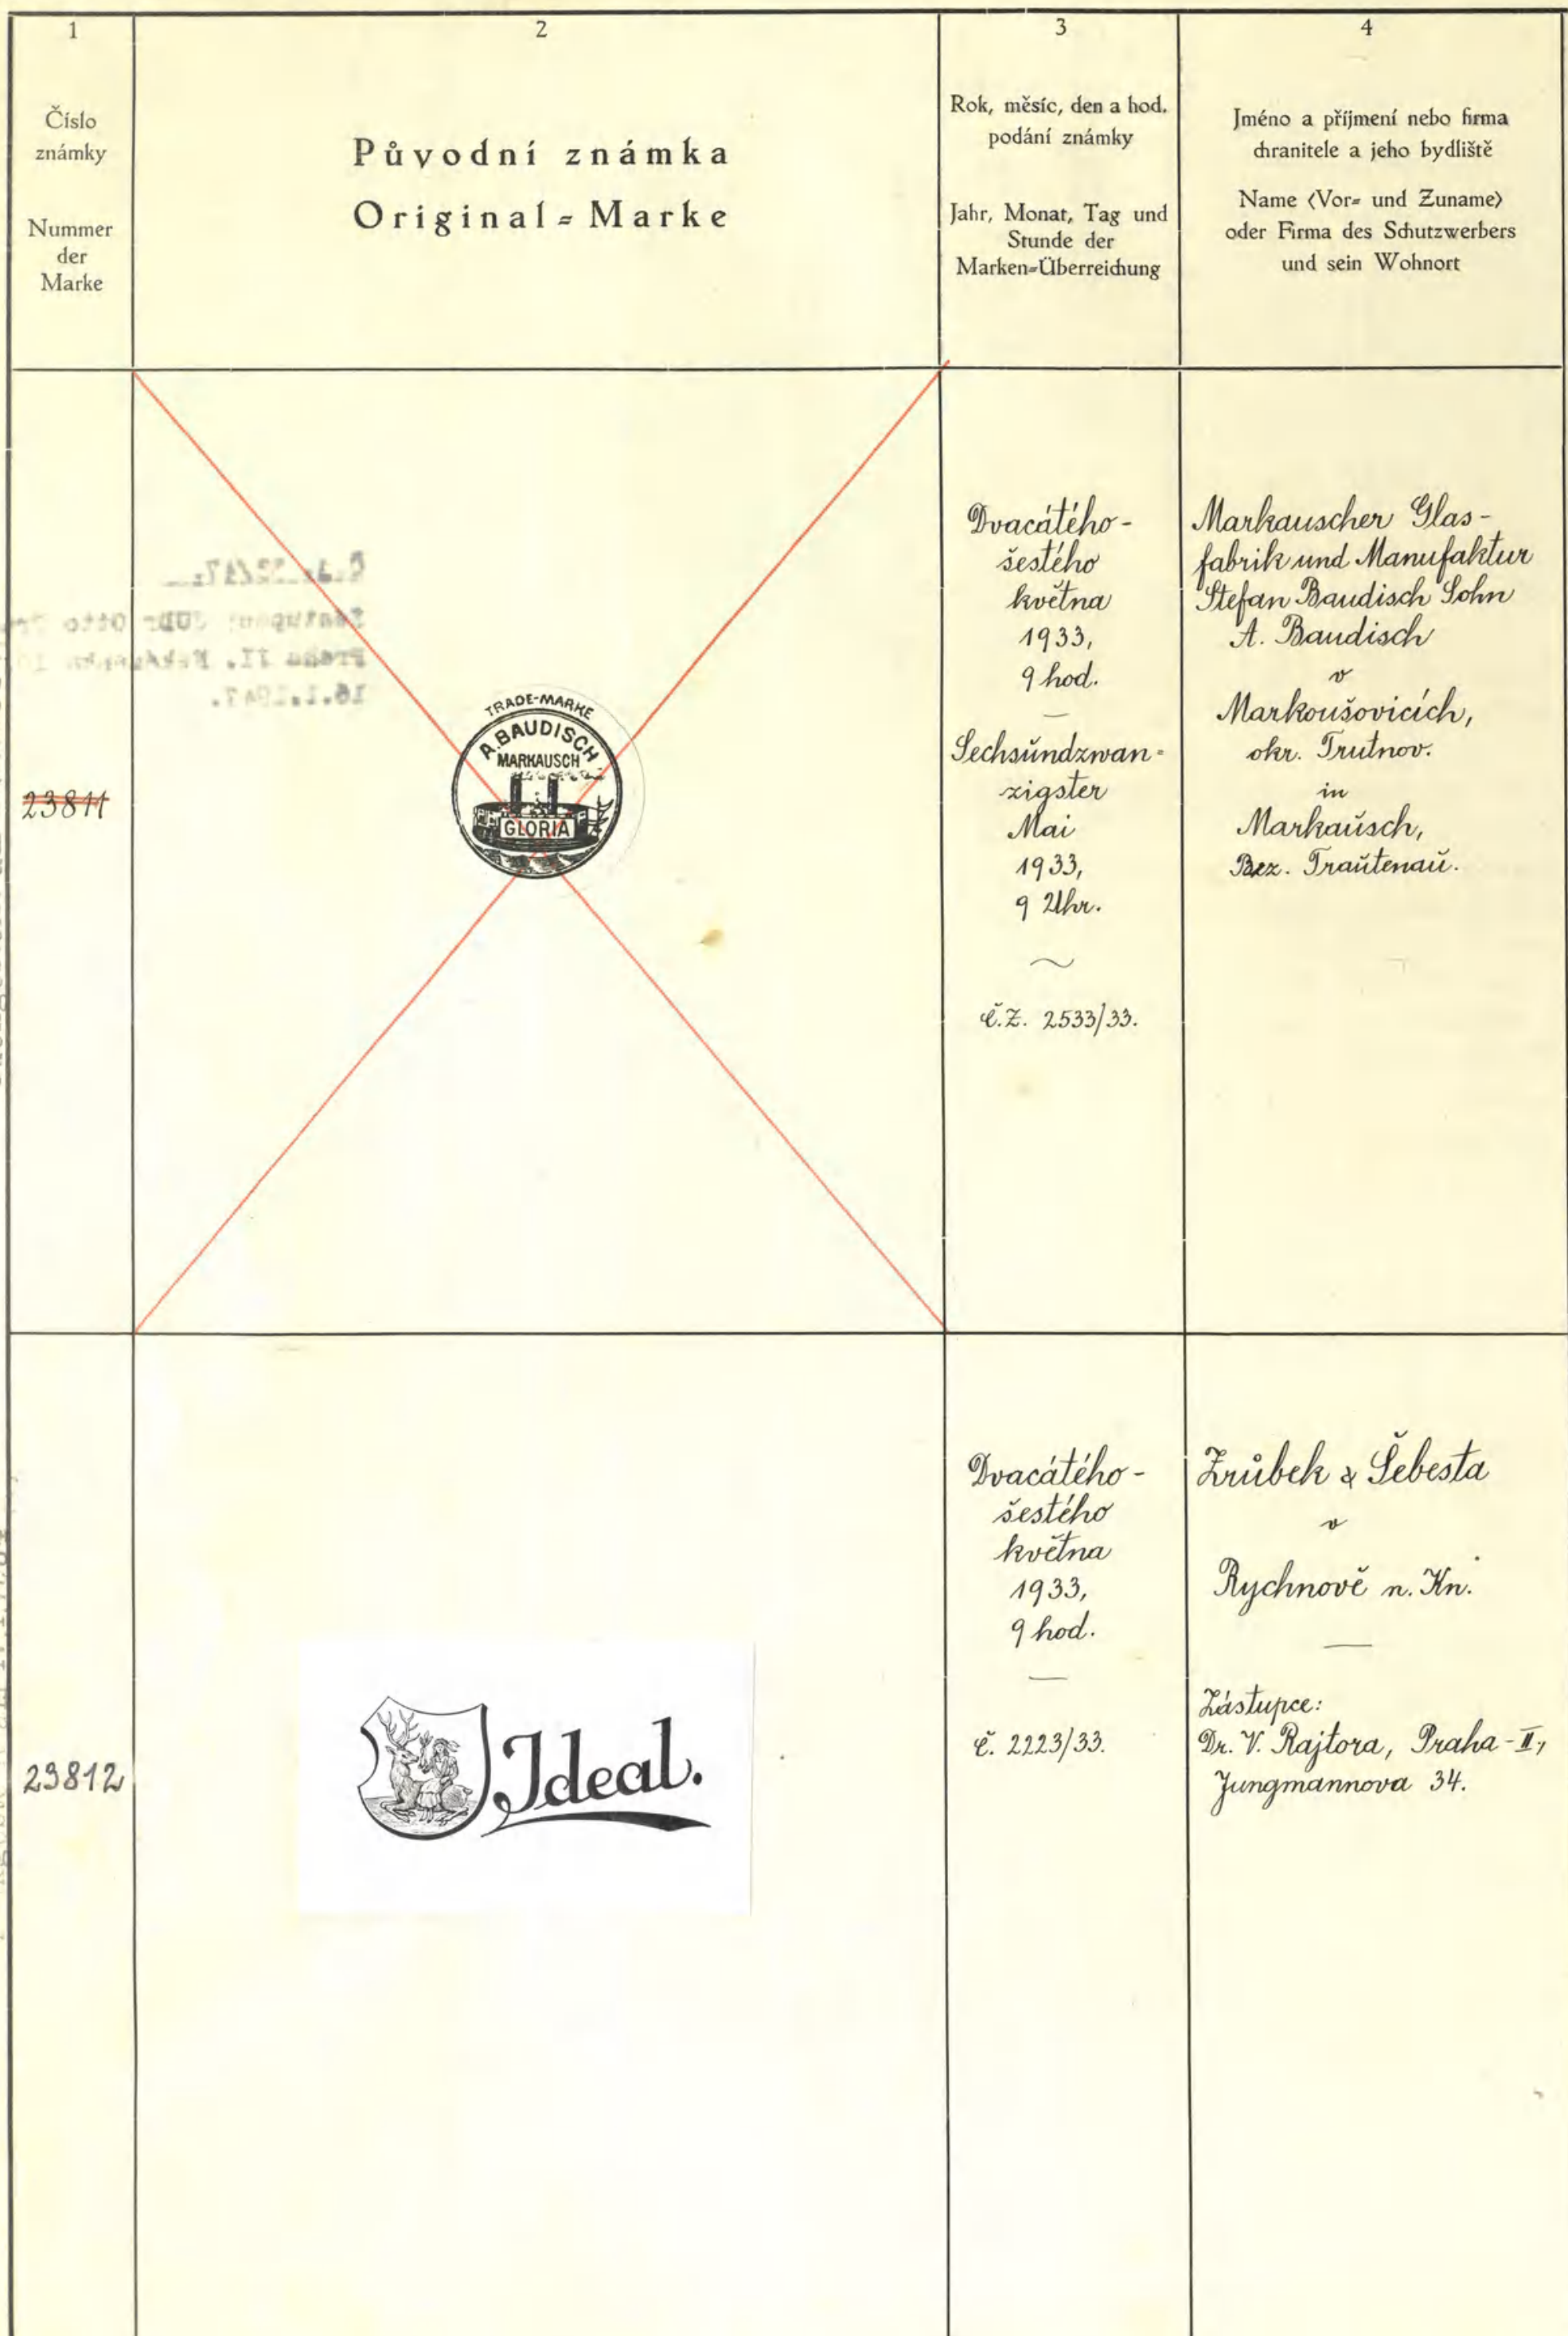 1
Číslo
známky
Nummer
der
Marke
2
Původní známka
Original=Marke
3
Rok, měsíc, den a hod.
podání známky
Jahr, Monat, Tag und
Stunde der
Marken=Überreichung
4
Jméno a příjmení nebo firma
chranitele a jeho bydliště
Name (Vor= und Zuname)
oder Firma des Schutzwerbers
und sein Wohnort
23811
TRADE-MARKE
A. BAUDISCH
MARKAUSCH
GLORIA
Dvacátého-
šestého
května
1933,
9 hod.
—
Sechsŭndzwan=
zigster
Mai
1933,
9 Uhr.
~
Č.Z. 2533/33.
Markauscher Glas-
fabrik und Manufaktur
Stefan Baudisch Sohn
A. Baudisch
v
Markoušovicích,
okr. Trutnov.
in
Markaŭsch,
Bez. Traŭtenaŭ.
16.1.1947.
23812
Ideal.
Dvacátého-
šestého
května
1933,
9 hod.
—
Č. 2223/33.
Zrůbek & Šebesta
v
Rychnově n. Kn.
—
Zástupce:
Dr. V. Rajtora, Praha-II,
Jungmannova 34.